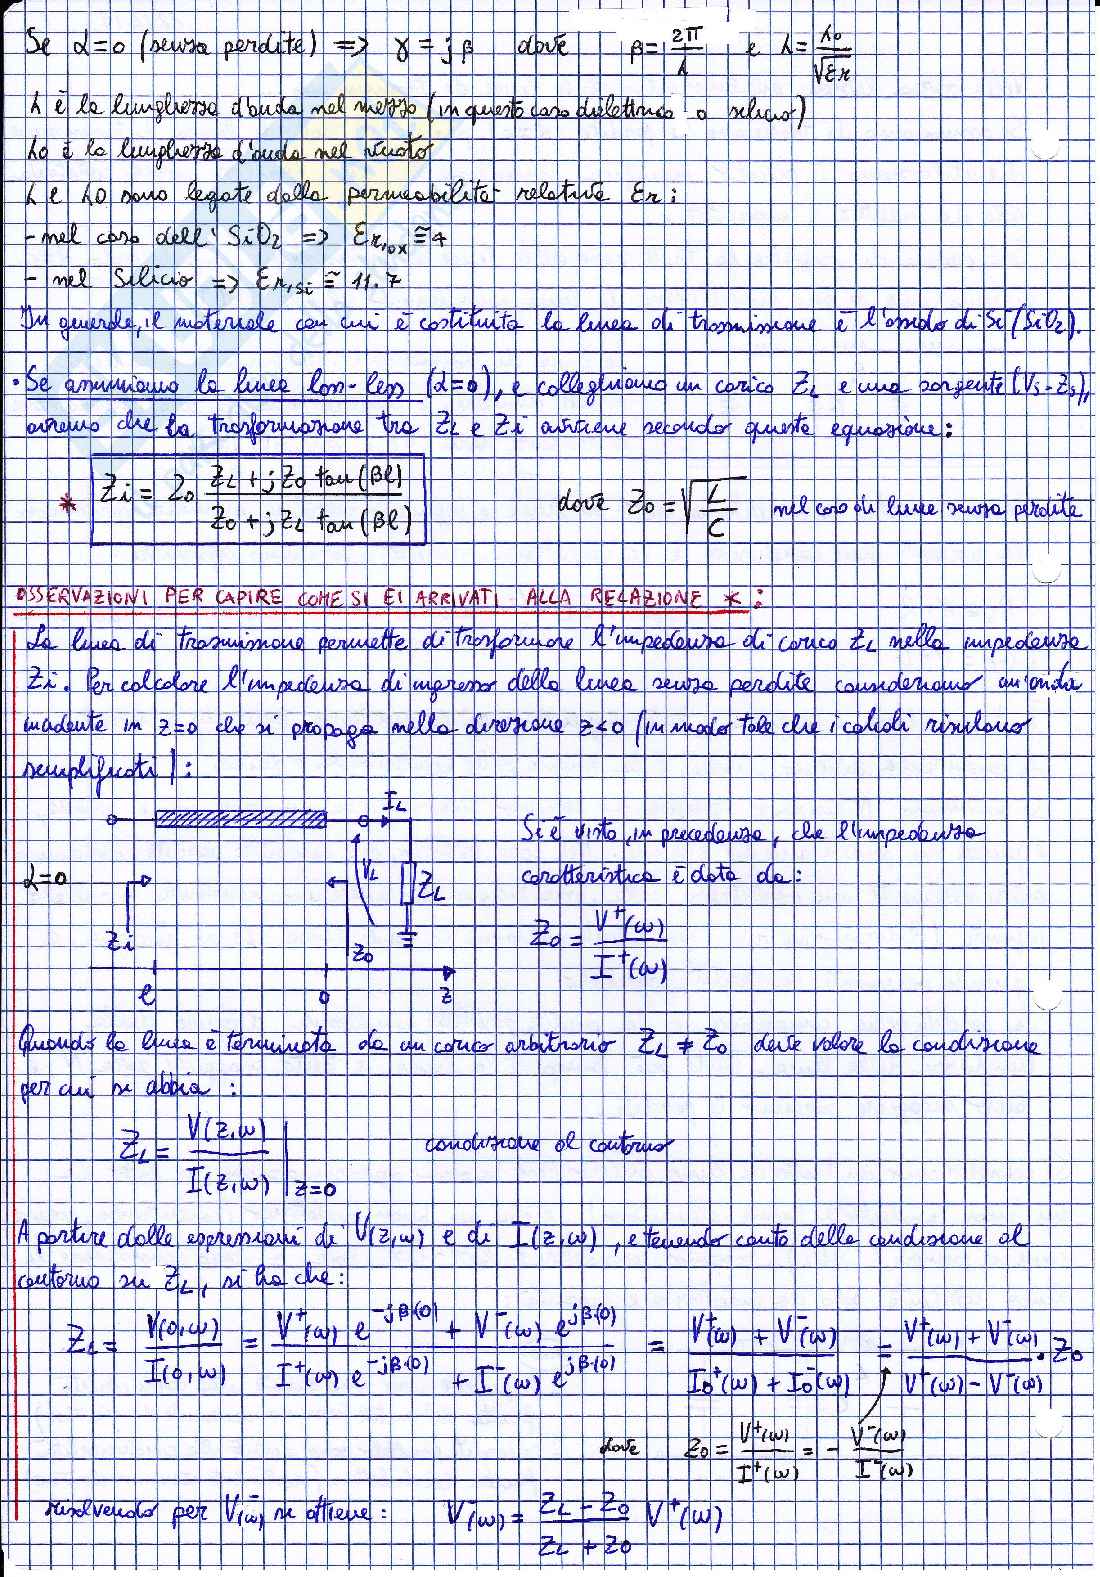 Se α=0 (senza perdite) => γ = jβ dove β = 2π/λ e λ = λ0/√εr
λ è la lunghezza d'onda nel mezzo (in questo caso dielettrico o silicio)
λ0 è la lunghezza d'onda nel vuoto
λ e λ0 sono legate dalla permeabilità relativa εr:
- nel caso dell' SiO2 => εr,ox ≅ 4
- nel Silicio => εr,si ≅ 11.7
In generale, il materiale con cui è costituita la linea di trasmissione è l'ossido di Si (SiO2).
• Se assumiamo la linea loss-less (α=0), e colleghiamo un carico ZL e una sorgente (Vs-Zs),
avremo che la trasformazione tra ZL e Zi avviene secondo questa equazione:
* Zi = Z0 (ZL + jZ0 tan(βl))/(Z0 + jZL tan(βl)) dove Z0 = √(L/C) nel caso di linee senza perdite
OSSERVAZIONI PER CAPIRE COME SI E' ARRIVATI ALLA RELAZIONE *:
La linea di trasmissione permette di trasformare l'impedenza di carico ZL nella impedenza
Zi. Per calcolare l'impedenza di ingresso della linea senza perdite consideriamo un'onda
incidente in z=0 che si propaga nella direzione z<0 (in modo tale che i calcoli risultano
semplificati):
IL
α=0
VL
ZL
Zi
Z0
l
0
z
Si è visto, in precedenza, che l'impedenza
caratteristica è data da:
Z0 = V+(ω)/I+(ω)
Quando la linea è terminata da un carico arbitrario ZL ≠ Z0 deve valere la condizione
per cui si abbia:
ZL = V(z,ω)/I(z,ω) |z=0 condizione al contorno
A partire dalle espressioni di V(z,ω) e di I(z,ω), e tenendo conto della condizione al
contorno su ZL, si ha che:
ZL = V(0,ω)/I(0,ω) = (V+(ω) e^-jβ·(0) + V-(ω) e^jβ·(0))/(I+(ω) e^-jβ·(0) + I-(ω) e^jβ·(0)) = (V+(ω) + V-(ω))/(I0+(ω) + I0-(ω)) = (V+(ω) + V-(ω))/(V+(ω) - V-(ω)) · Z0
dove Z0 = V+(ω)/I+(ω) = - V-(ω)/I-(ω)
risolvendo per V-(ω) si ottiene: V-(ω) = (ZL - Z0)/(ZL + Z0) V+(ω)